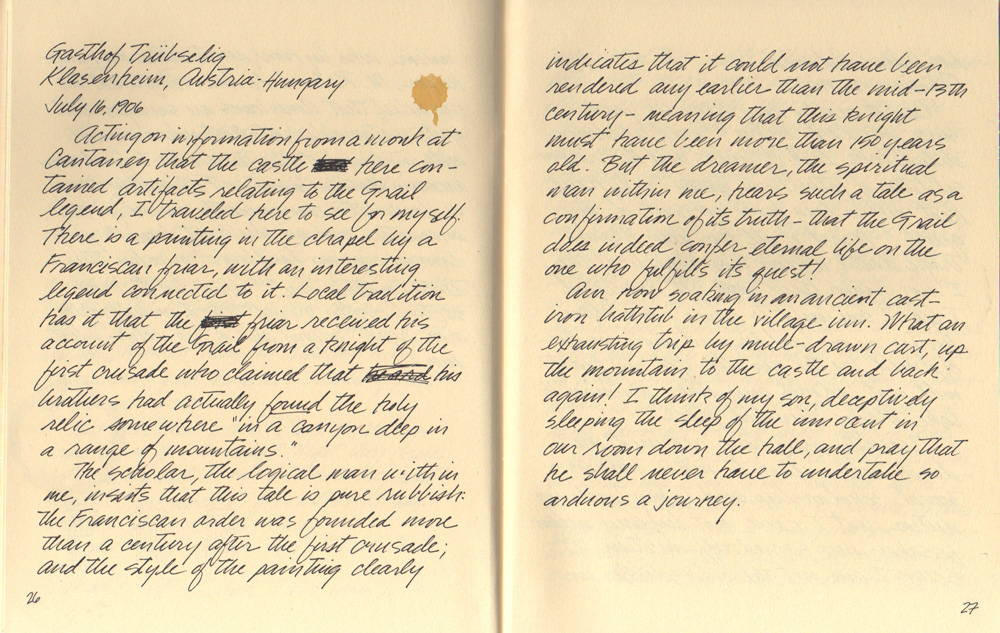 Gasthof Trübselig
Klasenheim, Austria-Hungary
July 16, 1906
Acting on information from a monk at
Cantaney that the castle here con-
tained artifacts relating to the Grail
legend, I traveled here to see for myself.
There is a painting in the chapel by a
Franciscan friar, with an interesting
legend connected to it. Local tradition
has it that the friar received his
account of the Grail from a knight of the
first crusade who claimed that his
brothers had actually found the holy
relic somewhere "in a canyon deep in
a range of mountains."
The scholar, the logical man within
me, insists that this tale is pure rubbish:
the Franciscan order was founded more
than a century after the first crusade;
and the style of the painting clearly
26
indicates that it could not have been
rendered any earlier than the mid-13th
century - meaning that this knight
must have been more than 150 years
old. But the dreamer, the spiritual
man within me, hears such a tale as a
confirmation of its truth - that the Grail
does indeed confer eternal life on the
one who fulfills its quest!
Am now soaking in an ancient cast-
iron bathtub in the village inn. What an
exhausting trip by mule-drawn cart, up
the mountains to the castle and back
again! I think of my son, deceptively
sleeping the sleep of the innocent in
our room down the hall, and pray that
he shall never have to undertake so
arduous a journey.
27